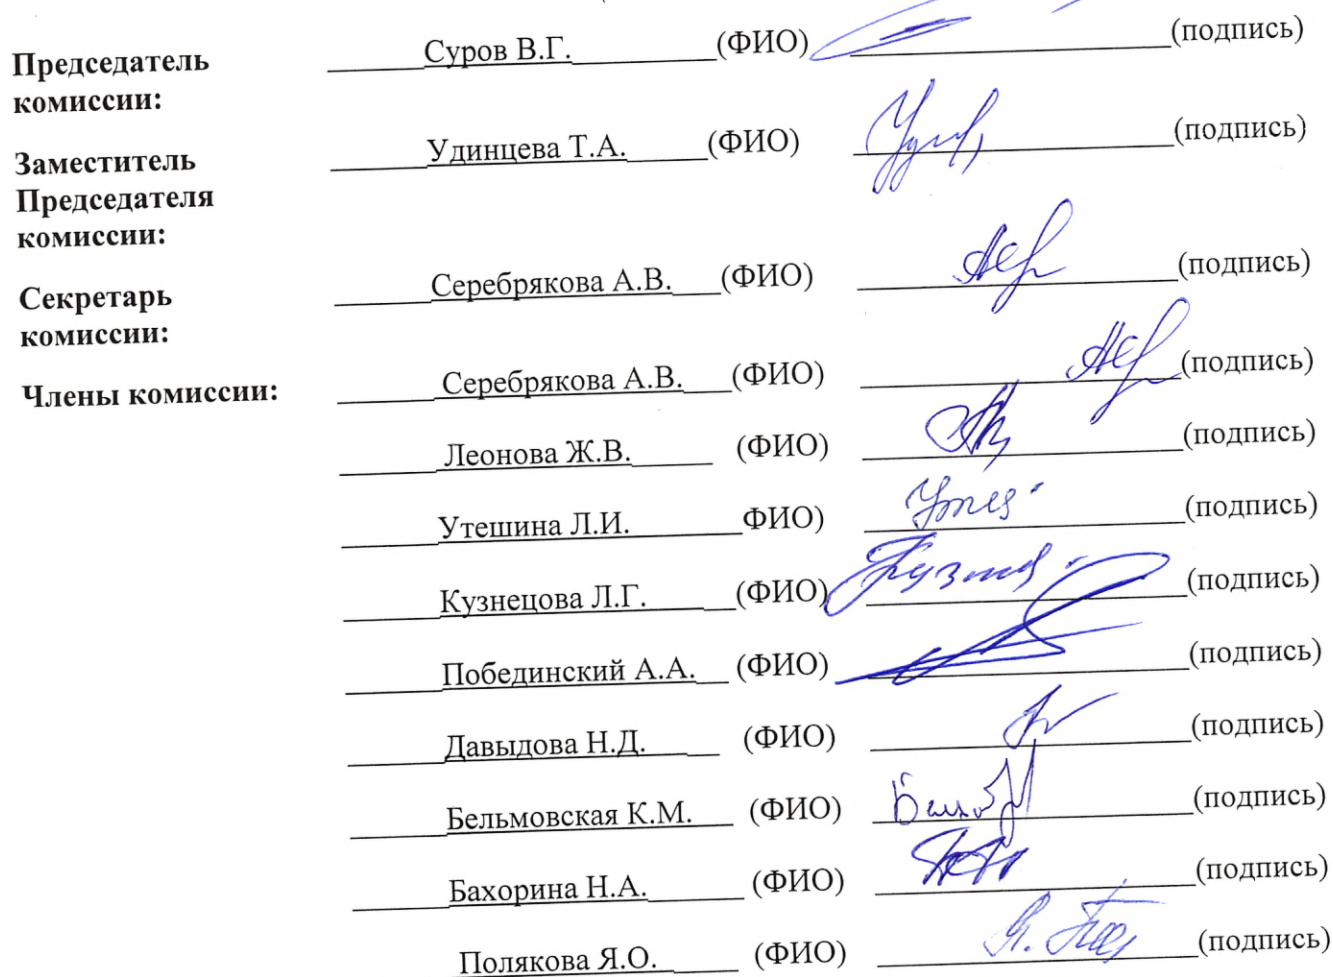 Председатель Суров В.Г. (ФИО) (подпись)
комиссии:
Заместитель Удинцева Т.А. (ФИО) (подпись)
Председателя
комиссии:
Секретарь Серебрякова А.В. (ФИО) (подпись)
комиссии:
Члены комиссии: Серебрякова А.В. (ФИО) (подпись)
Леонова Ж.В. (ФИО) (подпись)
Утешина Л.И. ФИО) (подпись)
Кузнецова Л.Г. (ФИО) (подпись)
Побединский А.А. (ФИО) (подпись)
Давыдова Н.Д. (ФИО) (подпись)
Бельмовская К.М. (ФИО) (подпись)
Бахорина Н.А. (ФИО) (подпись)
Полякова Я.О. (ФИО) (подпись)